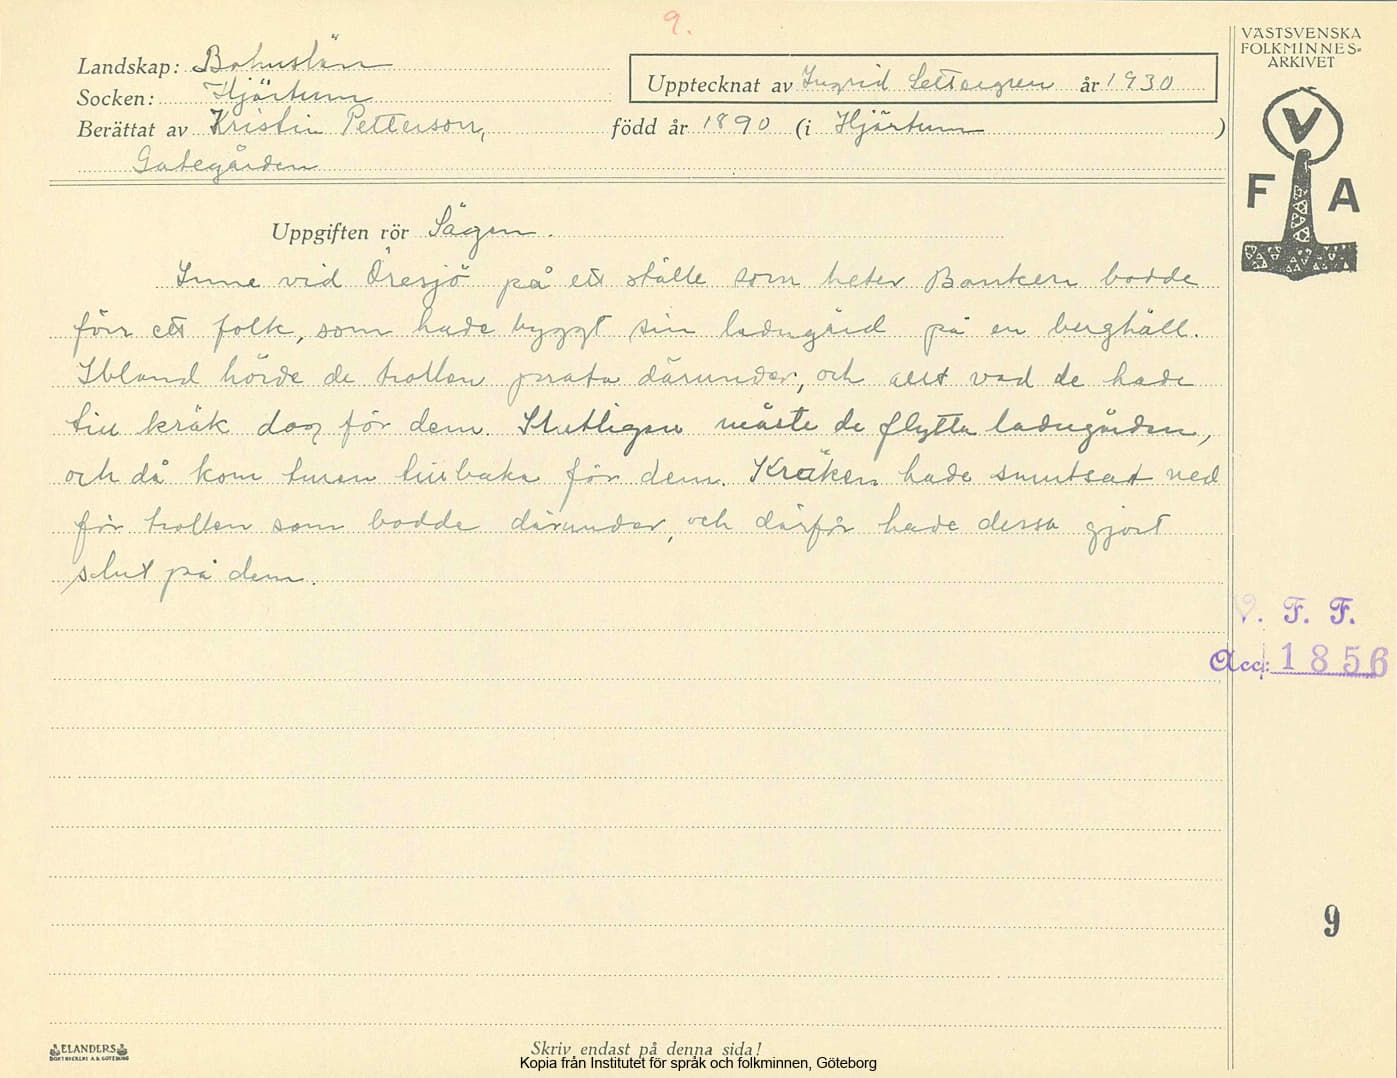 9.
VÄSTSVENSKA
FOLKMINNES-
ARKIVET
Landskap: Bohuslän
Upptecknat av Ingrid Settergren år 1930
Socken: Hjärtum
Berättat av Kristin Petterson, född år 1890 (i Hjärtum )
Gategården
V
F A
Uppgiften rör Sägen.
Inne vid Öresjö på ett ställe som heter Banken bodde
förr ett folk, som hade byggt sin ladugård på en berghäll.
Ibland hörde de trollen prata därunder, och allt vad de hade
till kräk dog för dem. Slutligen måste de flytta ladugården,
och då kom turen tillbaka för dem. Kräken hade smutsat ned
för trollen som bodde därunder, och därför hade dessa gjort
slut på dem.
V. F. F.
Acc: 1856
9
ELANDERS
BOKTRYCKERI A.B. GÖTEBORG
Skriv endast på denna sida!
Kopia från Institutet för språk och folkminnen, Göteborg